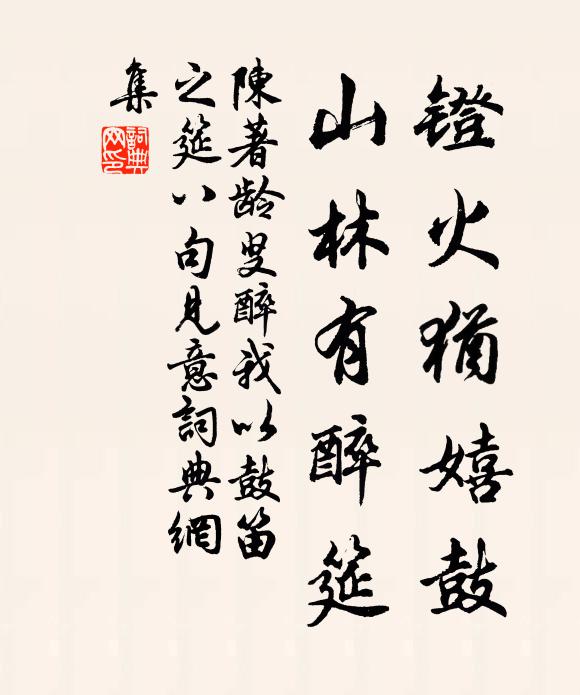 镫火犹嬉鼓
山林有醉筵
陳著龄叟醉我以鼓笛
之筵八句見意詞典網
集
詞典
网印